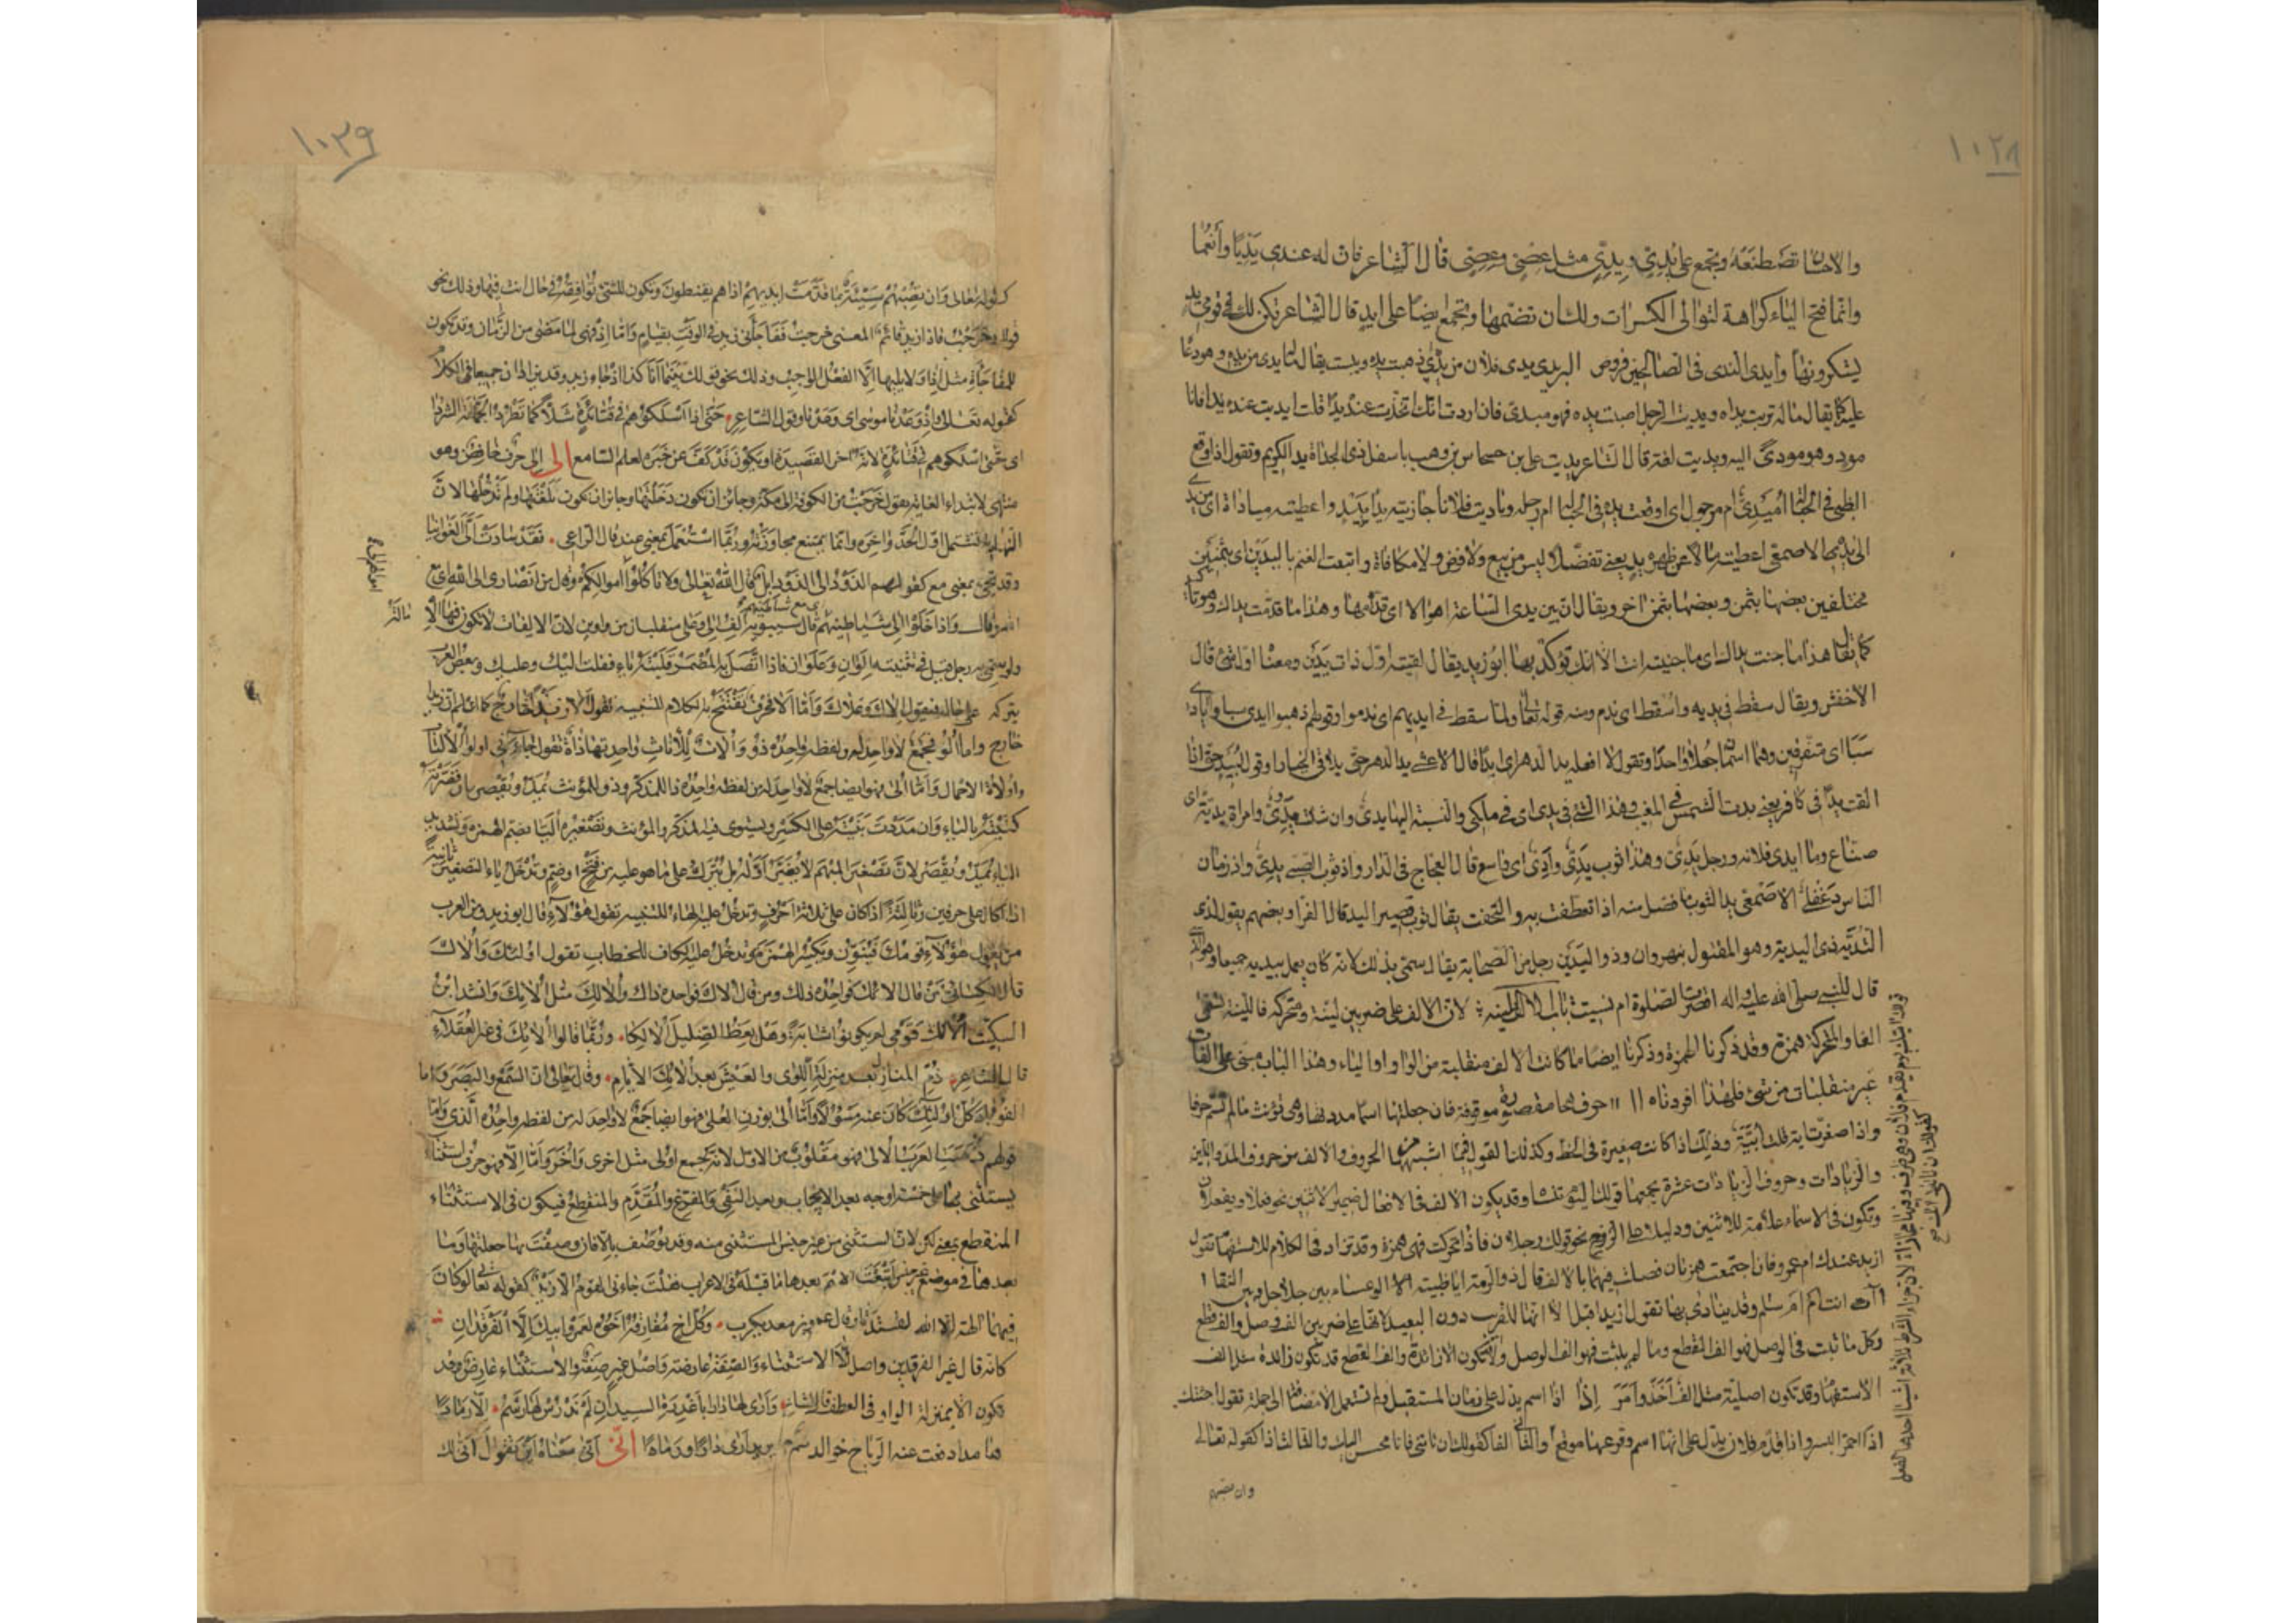 ١٠٢٨
والاحسان تصطنعه وتجمع على يُدِيّ ويِدِيّ مثل عُصِيّ وعِصِيّ قال الشاعر فان له عندى يَدِيًّا وأنعُما
وانما فتح الياء كراهة لتوالى الكسرات ولك ان تضمها وتجمع ايضا على ايدٍ قال الشاعر تكن لك فى قومى يد
يشكرونها وايدى الندى فى الصالحين فروض اليزيدى يدى فلان من يده اى ذهبت يده ويبست يقال ما له يدى من يده وهو دعا
عليه كما يقال ما له تربت يداه ويديت الرجل اصبت يده فهو ميدىّ فان اردت انك اتخذت عنده يدا قلت ايديت عنده يدا فانا
مودٍ وهو مودًى اليه ويديت لغة قال الشاعر يديت على بن حسحاس بن وهب باسفل ذى الجذاة يد الكريم وتقول اذا وقع
الظبى فى الحبالة أميدىّ ام مرجول اى اوقعت يده فى الحبالة ام رجله وياديت فلانا جازيته يدا بيد واعطيته مياداة اى من يدى
الى يده الاصمعى اعطيته مالا عن ظهر يد يعنى تفضلا ليس من بيع ولا قرض ولا مكافاة وابتعت الغنم باليدين اى بثمنين
مختلفين بعضها بثمن وبعضها بثمن اخر ويقال ان بين يدى الساعة اهوالا اى قدامها وهذا ما قدمت يداك وهو تاكيد
كما يقال هذا ما جنت يداك اى ما جنيته انت الا انك توكد بها ابو زيد يقال لقيته اول ذات يدين ومعناه اول شئ قال
الاخفش ويقال سقط فى يديه وأسقط اى ندم ومنه قوله تعالى ولما سقط فى ايديهم اى ندموا وقولهم ذهبوا ايدى سبا وايادى
سبا اى متفرقين وهما اسمان جعلا واحدا وتقول لا افعله يد الدهر اى ابدا قال الاعشى يد الدهر حتى يلاقى الخيارا وقول لبيد حتى اذا
القت يدا فى كافر يعنى بدت الشمس فى المغيب وهذا الشئ فى يدى اى فى ملكى والنسبة اليها يدىّ وان شئت يدوىّ وامراة يديّة اى
صناع وما ايدى فلانة ورجل يدىّ وهذا ثوب يدىّ وأدىّ اى واسع قال العجاج فى الدار اذ ثوب الصبى يدىّ واذ زمان
الناس دغفلىّ الاصمعى يد الثوب ما فضل منه اذا تعطفت به والتحفت يقال ثوب قصير اليد قال الفرا وبعضهم يقول لذى
الثديّة ذى اليديّة وهو المقتول بنهروان وذو اليدين رجل من الصحابة يقال سمى بذلك لانه كان يعمل بيديه جميعا وهو الذى
قال للنبى صلى الله عليه واله اقصرت الصلوة ام نسيت باب الالف اللينة لان الالف على ضربين لينة ومتحركة فاللينة تسمى
الفا والمتحركة همزة وقد ذكرنا الهمزة وذكرنا ايضا ما كانت الالف منقلبة من الواو او الياء وهذا الباب مبنى على الفات
غير منقلبات من شئ فلهذا افردناه آ آ حرف هجا مقصورة موقوفة فان جعلتها اسما مددتها وهى تؤنث ما لم تسم حرفا
واذا صغرت اية قلت أييّة وذلك اذا كانت صغيرة فى الخط وكذلك القول فيما اشبهها من الحروف والالف من حروف المد واللين
والزيادات وحروف الزيادات عشرة يجمعها قولك اليوم تنساه وقد يكون الالف فى الافعال ضمير الاثنين نحو فعلا ويفعلان
وتكون فى الاسماء علامة للاثنين ودليلا على الرفع نحو قولك رجلان فاذا تحركت فهى همزة وقد تزاد فى الكلام للاستفهام تقول
ازيد عندك ام عمرو فان اجتمعت همزتان فصلت بينهما بالالف قال ذو الرمة ايا ظبية الوعساء بين جلاجل وبين النقا ا
اانت ام ام سالم وقد ينادى بها تقول ازيد اقبل الا انها للقريب دون البعيد لانها على ضربين الف وصل والف قطع
وكل ما ثبت فى الوصل فهو الف القطع وما لم يثبت فهو الف الوصل ولا تكون الا زائدة والف القطع قد تكون زائدة مثل الف
الاستفهام وقد تكون اصلية مثل الف اخذ وامر إذا اذا اسم يدل على زمان المستقبل ولم تستعمل الا مضافة الى جملة تقول اجيئك
اذا احمر البسر واذا قدم فلان يدل على انها اسم وقوعها موقع الفا كقولك ان تاتنى فانا محسن اليك والثالث اذا كقوله تعالى
وان تصبهم
١٠٣٩
كقوله تعالى وان تصبهم سيئة بما قدمت ايديهم اذا هم يقنطون وتكون للشئ توافقه فى حال انت فيها وذلك نحو
قولك خرجت فاذا زيد قائم المعنى خرجت ففاجأنى زيد فى الوقت بقيام واما اذ فهى لما مضى من الزمان وقد تكون
للمفاجأة مثل اذا ولا يليها الا الفعل الواجب وذلك نحو قولك بينما انا كذا اذ جاء زيد وقد يزادان جميعا فى الكلام
كقوله تعالى واذ وعدنا موسى اى وعدنا وقول الشاعر حتى اذا اسلكوهم فى قتائدة شلا كما تطرد الجمالة الشردا
اى حتى اسلكوهم فى قتائدة لانه اخر القصيدة او يكون قد كف عن خبره لعلم السامع الى الى حرف خافض وهو
منتهى لابتداء الغاية تقول خرجت من الكوفة الى مكة وجائز ان تكون دخلتها وجائز ان تكون بلغتها ولم تدخلها لان
النهاية تشتمل اول الحد واخره وانما يمتنع مجاوزته وربما استعمل بمعنى عند قال الراعى فقد سادت الىّ الغوانيا
وقد تجئ بمعنى مع كقولهم الذود الى الذود ابل قال الله تعالى ولا تاكلوا اموالهم الى اموالكم وقال من انصارى الى الله اى مع
الله وقال واذا خلوا الى شياطينهم قال سيبويه الف الى وعلى منقلبتان من واوين لان الالفات لا تكون فيها الا
ولو سمى به رجل قيل فى تثنيته الوان وعلوان فاذا اتصل به المضمر قلبته ياء فقلت اليك وعليك وبعض العرب
يتركه على حاله فيقول الاك وعلاك واما ألا فحرف يفتتح به الكلام للتنبيه تقول الا ان زيدا خارج كما تقول اعلم ان زيدا
خارج واما ألو فجمع لا واحد له من لفظه واحده ذو وألات للاناث واحدتها ذات تقول جاءنى اولو الالباب
واولات الاحمال واما الى فهو ايضا جمع لا واحد له من لفظه واحده ذا للمذكر وذه للمؤنث يمد ويقصر فان قصرته
كتبته بالياء وان مددت بنيته على الكسر ويستوى فيه المذكر والمؤنث وتصغيره أليّا بضم الهمزة وتشديد
الياء يمد ويقصر لان تصغير المبهم لا يغير اوله بل يترك على ما هو عليه من فتح او ضم وتدخل ياء التصغير ثانية
اذا كان على حرفين وثالثة اذا كان على ثلاثة احرف وتدخل عليه الهاء للتنبيه تقول هؤلاء قال ابو زيد ومن العرب
من يقول هؤلاء قومك فينون ويكسر الهمزة وتدخل عليه الكاف للخطاب تقول اولئك وألاك
قال الكسائى من قال الائك فواحده ذلك ومن قال الاك فواحده ذاك وألالك مثل ألائك وانشد ابن
السكيت ألالك قومى لم يكونوا اشابة وهل يعظ الضليل ألالكا وربما قالوا ألائك فى غير العقلاء
قال الشاعر ذم المنازل بعد منزلة اللوى والعيش بعد الائك الايام وقال تعالى ان السمع والبصر و
الفؤاد كل اولئك كان عنه مسؤلا واما ألى بوزن العلى فهو ايضا جمع لا واحد له من لفظه واحده الذى واما
قولهم ذهبت العرب الالى فهو مقلوب من الاول لانه جمع اولى مثل اخرى وأخر واما الا فهو حرف استثناء
يستثنى بها على خمسة اوجه بعد الايجاب وبعد النفى والمفرغ والمقدم والمنقطع فيكون فى الاستثناء
المنقطع بمعنى لكن لان المستثنى من غير جنس المستثنى منه وقد يوصف بالا فان وصفت بها جعلتها وما
بعدها فى موضع غير واتبعت الاسم بعدها ما قبله فى الاعراب فقلت جاءنى القوم الا زيد كقوله تعالى لو كان
فيهما الهة الا الله لفسدتا وقال عمرو بن معديكرب وكل اخ مفارقه اخوه لعمر ابيك الا الفرقدان
كانه قال غير الفرقدين واصل الا الاستثناء والصفة عارضة واصل غير صفة والاستثناء عارض وقد
تكون الا بمنزلة الواو فى العطف قال الشاعر وأرى لها دارا باغدرة السيدان لم يدرس لها رسم الا رمادا
هامدا دفعت عنه الرياح خوالد سحم يريد ارى دارا ورمادا أنّى أنّى معناه اين تقول أنّى لك